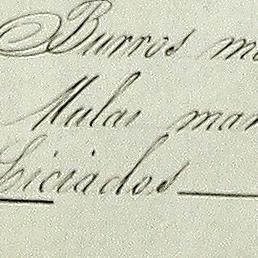 Burros m
Mulas man
Liciados